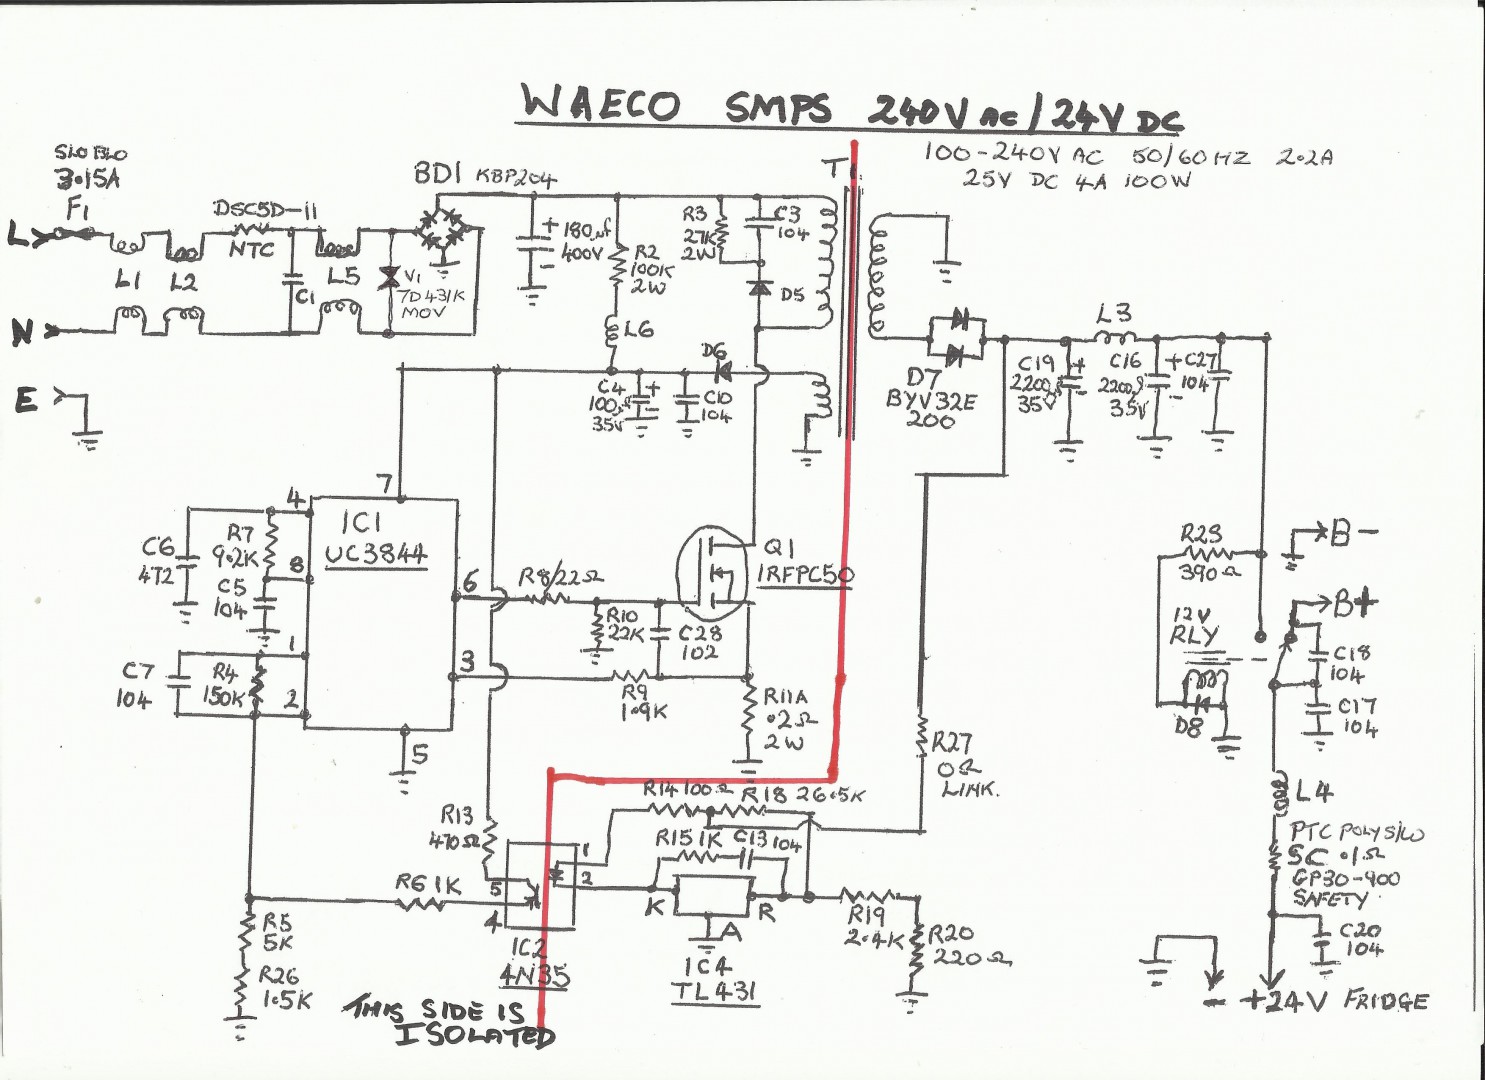 WAECO SMPS 240V AC/24V DC
100-240V AC 50/60HZ 2.2A
25V DC 4A 100W
SLO BLO
3.15A
F1
L
DSC5D-11
NTC
L1
L2
C1
L5
V1
7D431K
MOV
N
E
BD1 KBP204
+
180µf
400V
R2
100K
2W
L6
R3
27K
2W
C3
104
D5
T1
D6
C4
100µf
35V
+
C10
104
D7
BYV32E
200
L3
C19
2200µf
35V
+
C16
2200µf
35V
+
C27
104
7
4
IC1
UC3844
8
1
2
5
6
3
R7
9.2K
C6
472
C5
104
C7
104
R4
150K
R8/22Ω
R10
22K
C28
102
R9
1.9K
Q1
IRFPC50
R11A
.2Ω
2W
R27
0Ω
LINK.
R23
390Ω
B-
B+
12V
RLY
D8
C18
104
C17
104
L4
PTC POLYS/W
SC .1Ω
GP30-400
SAFETY
C20
104
- +24V FRIDGE
R13
470Ω
R14 100Ω
R18 26.5K
R15 1K
C13 104
1
2
5
4
K
R
A
R6 1K
R5
5K
R26
1.5K
IC2
4N35
IC4
TL431
R19
2.4K
R20
220Ω
THIS SIDE IS
ISOLATED